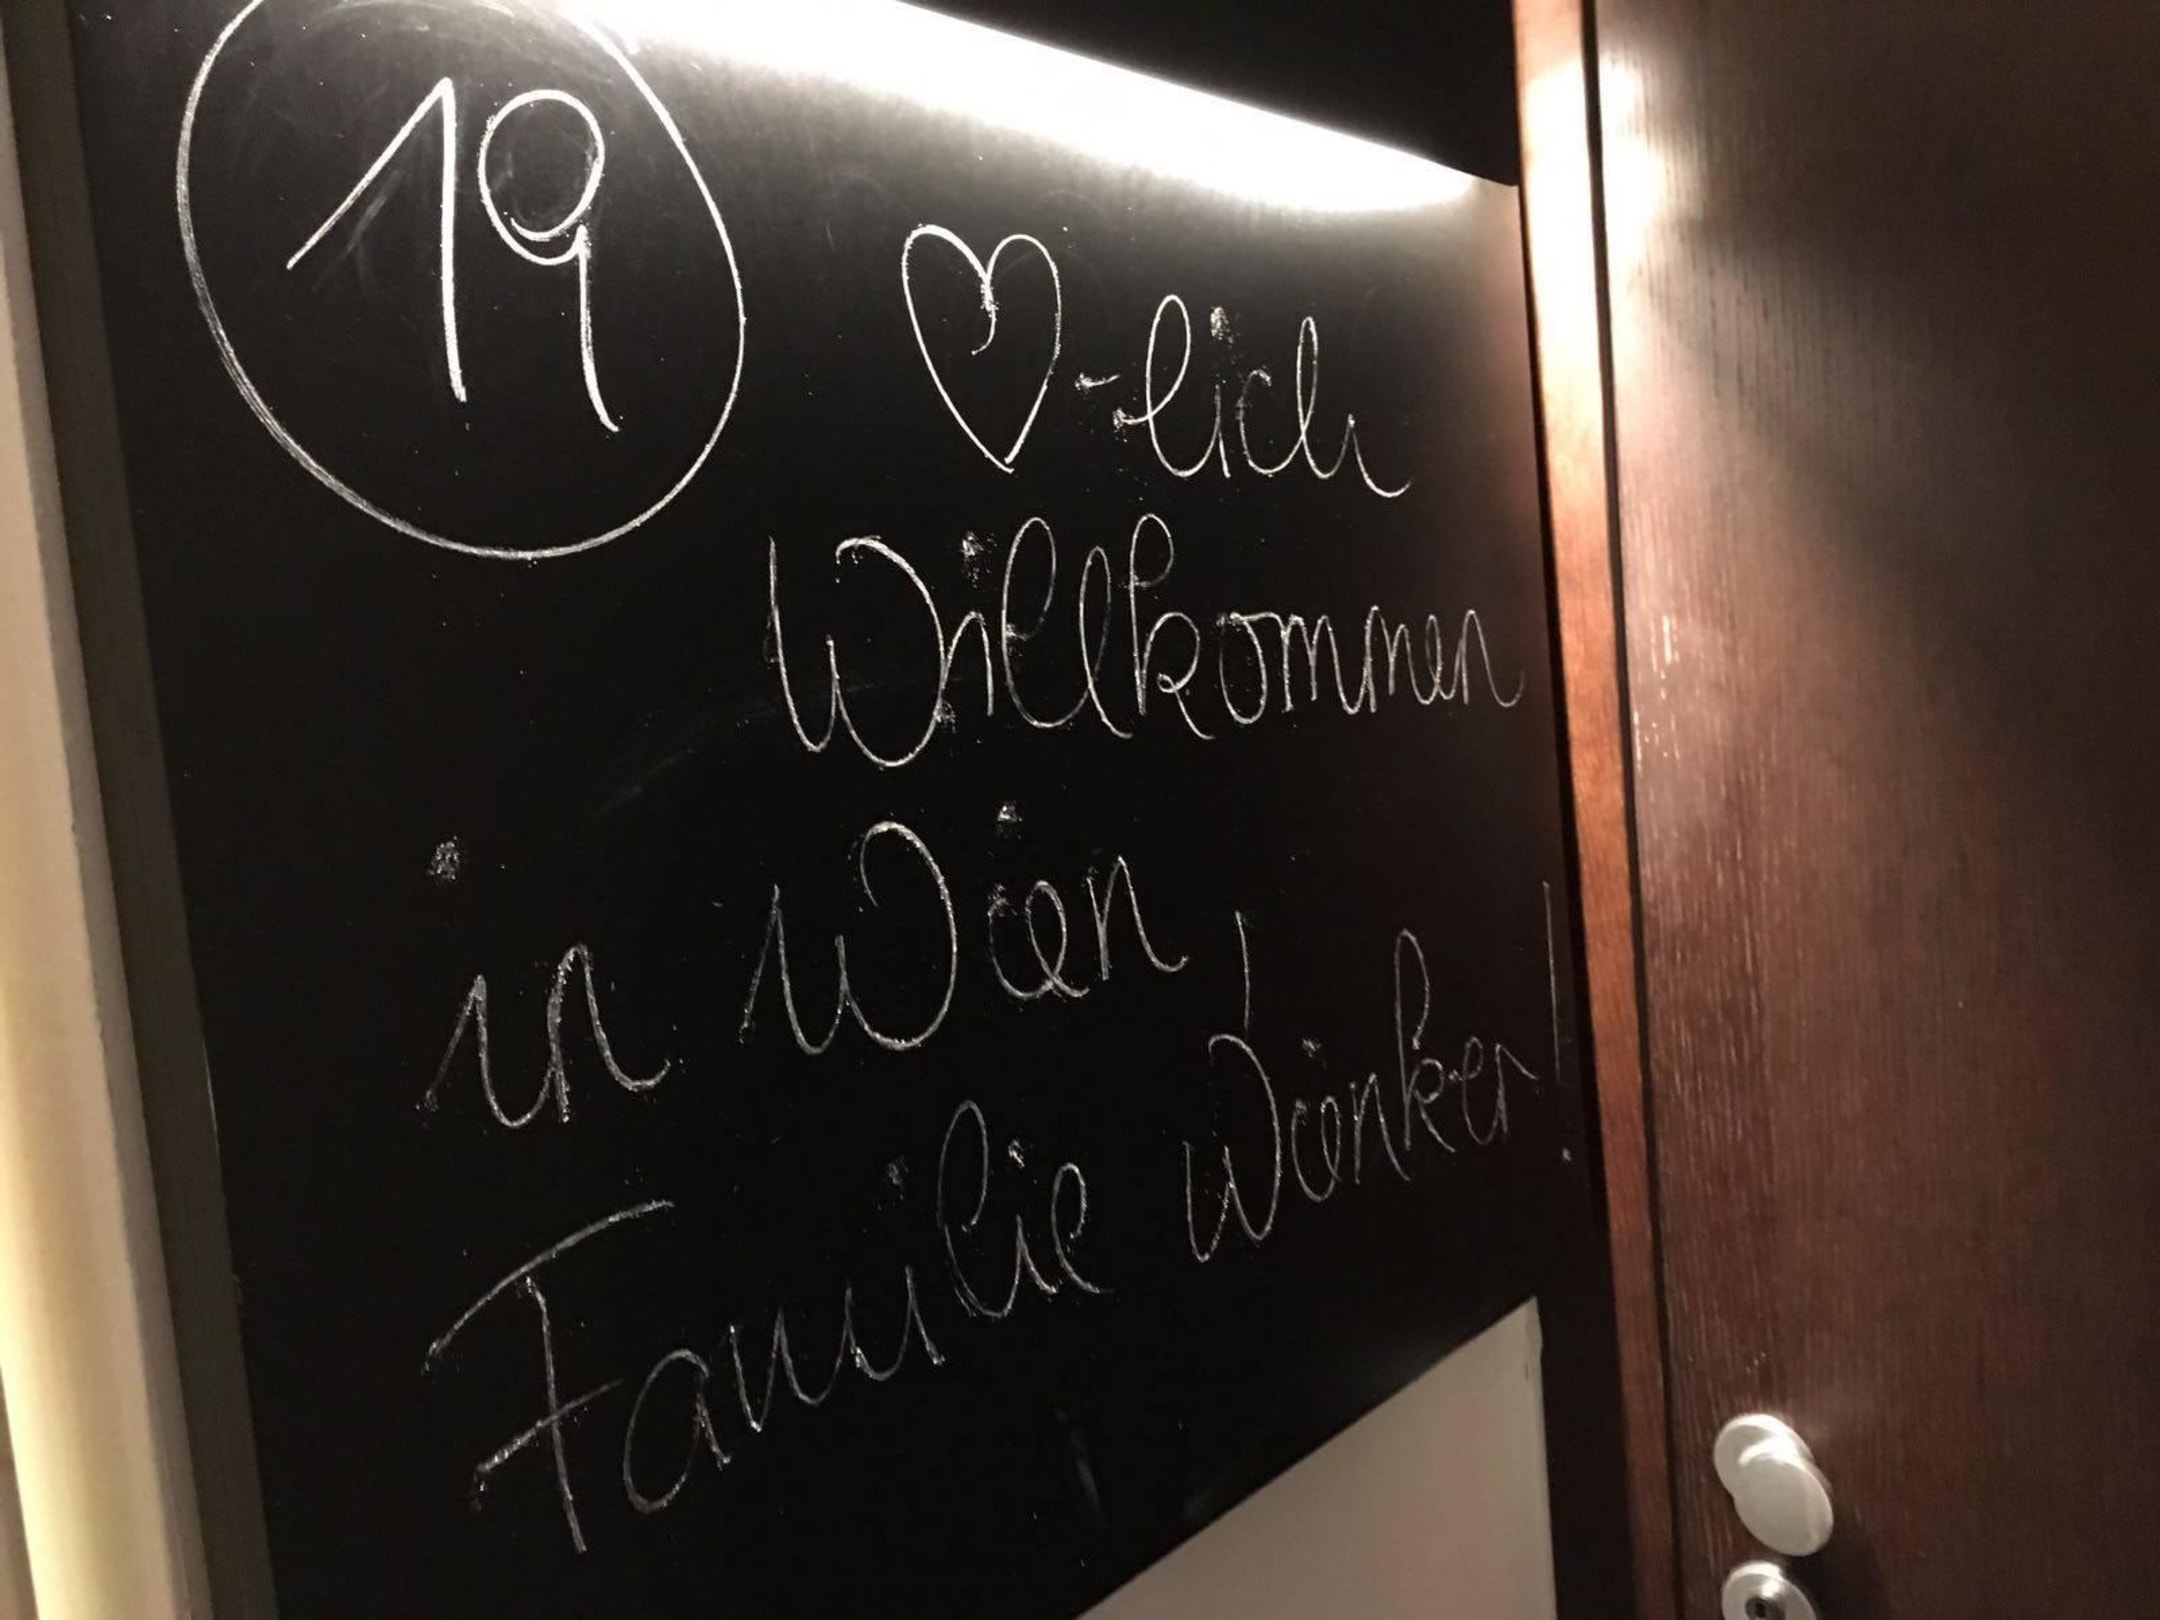 19
♡-lich
Willkommen
in Wien,
Familie Wienker!